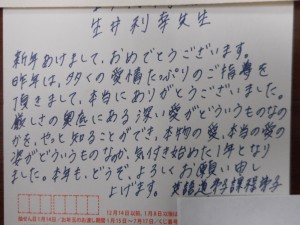 生井利幸先生
新年あけまして、おめでとうございます。
昨年は、多くの愛情たっぷりのご指導を
頂きまして、本当にありがとうございました。
厳しさの奥底にある深い愛がどういうものなの
かを、やっと知ることができ、本物の愛、本当の愛の
深がどういうものなか、気付き始めた1年となり
ました。本年も、どうぞ、よろしくお願い申し
上げます。
英語道
12月14日以前、1月8日以後
1月15日〜7月17日